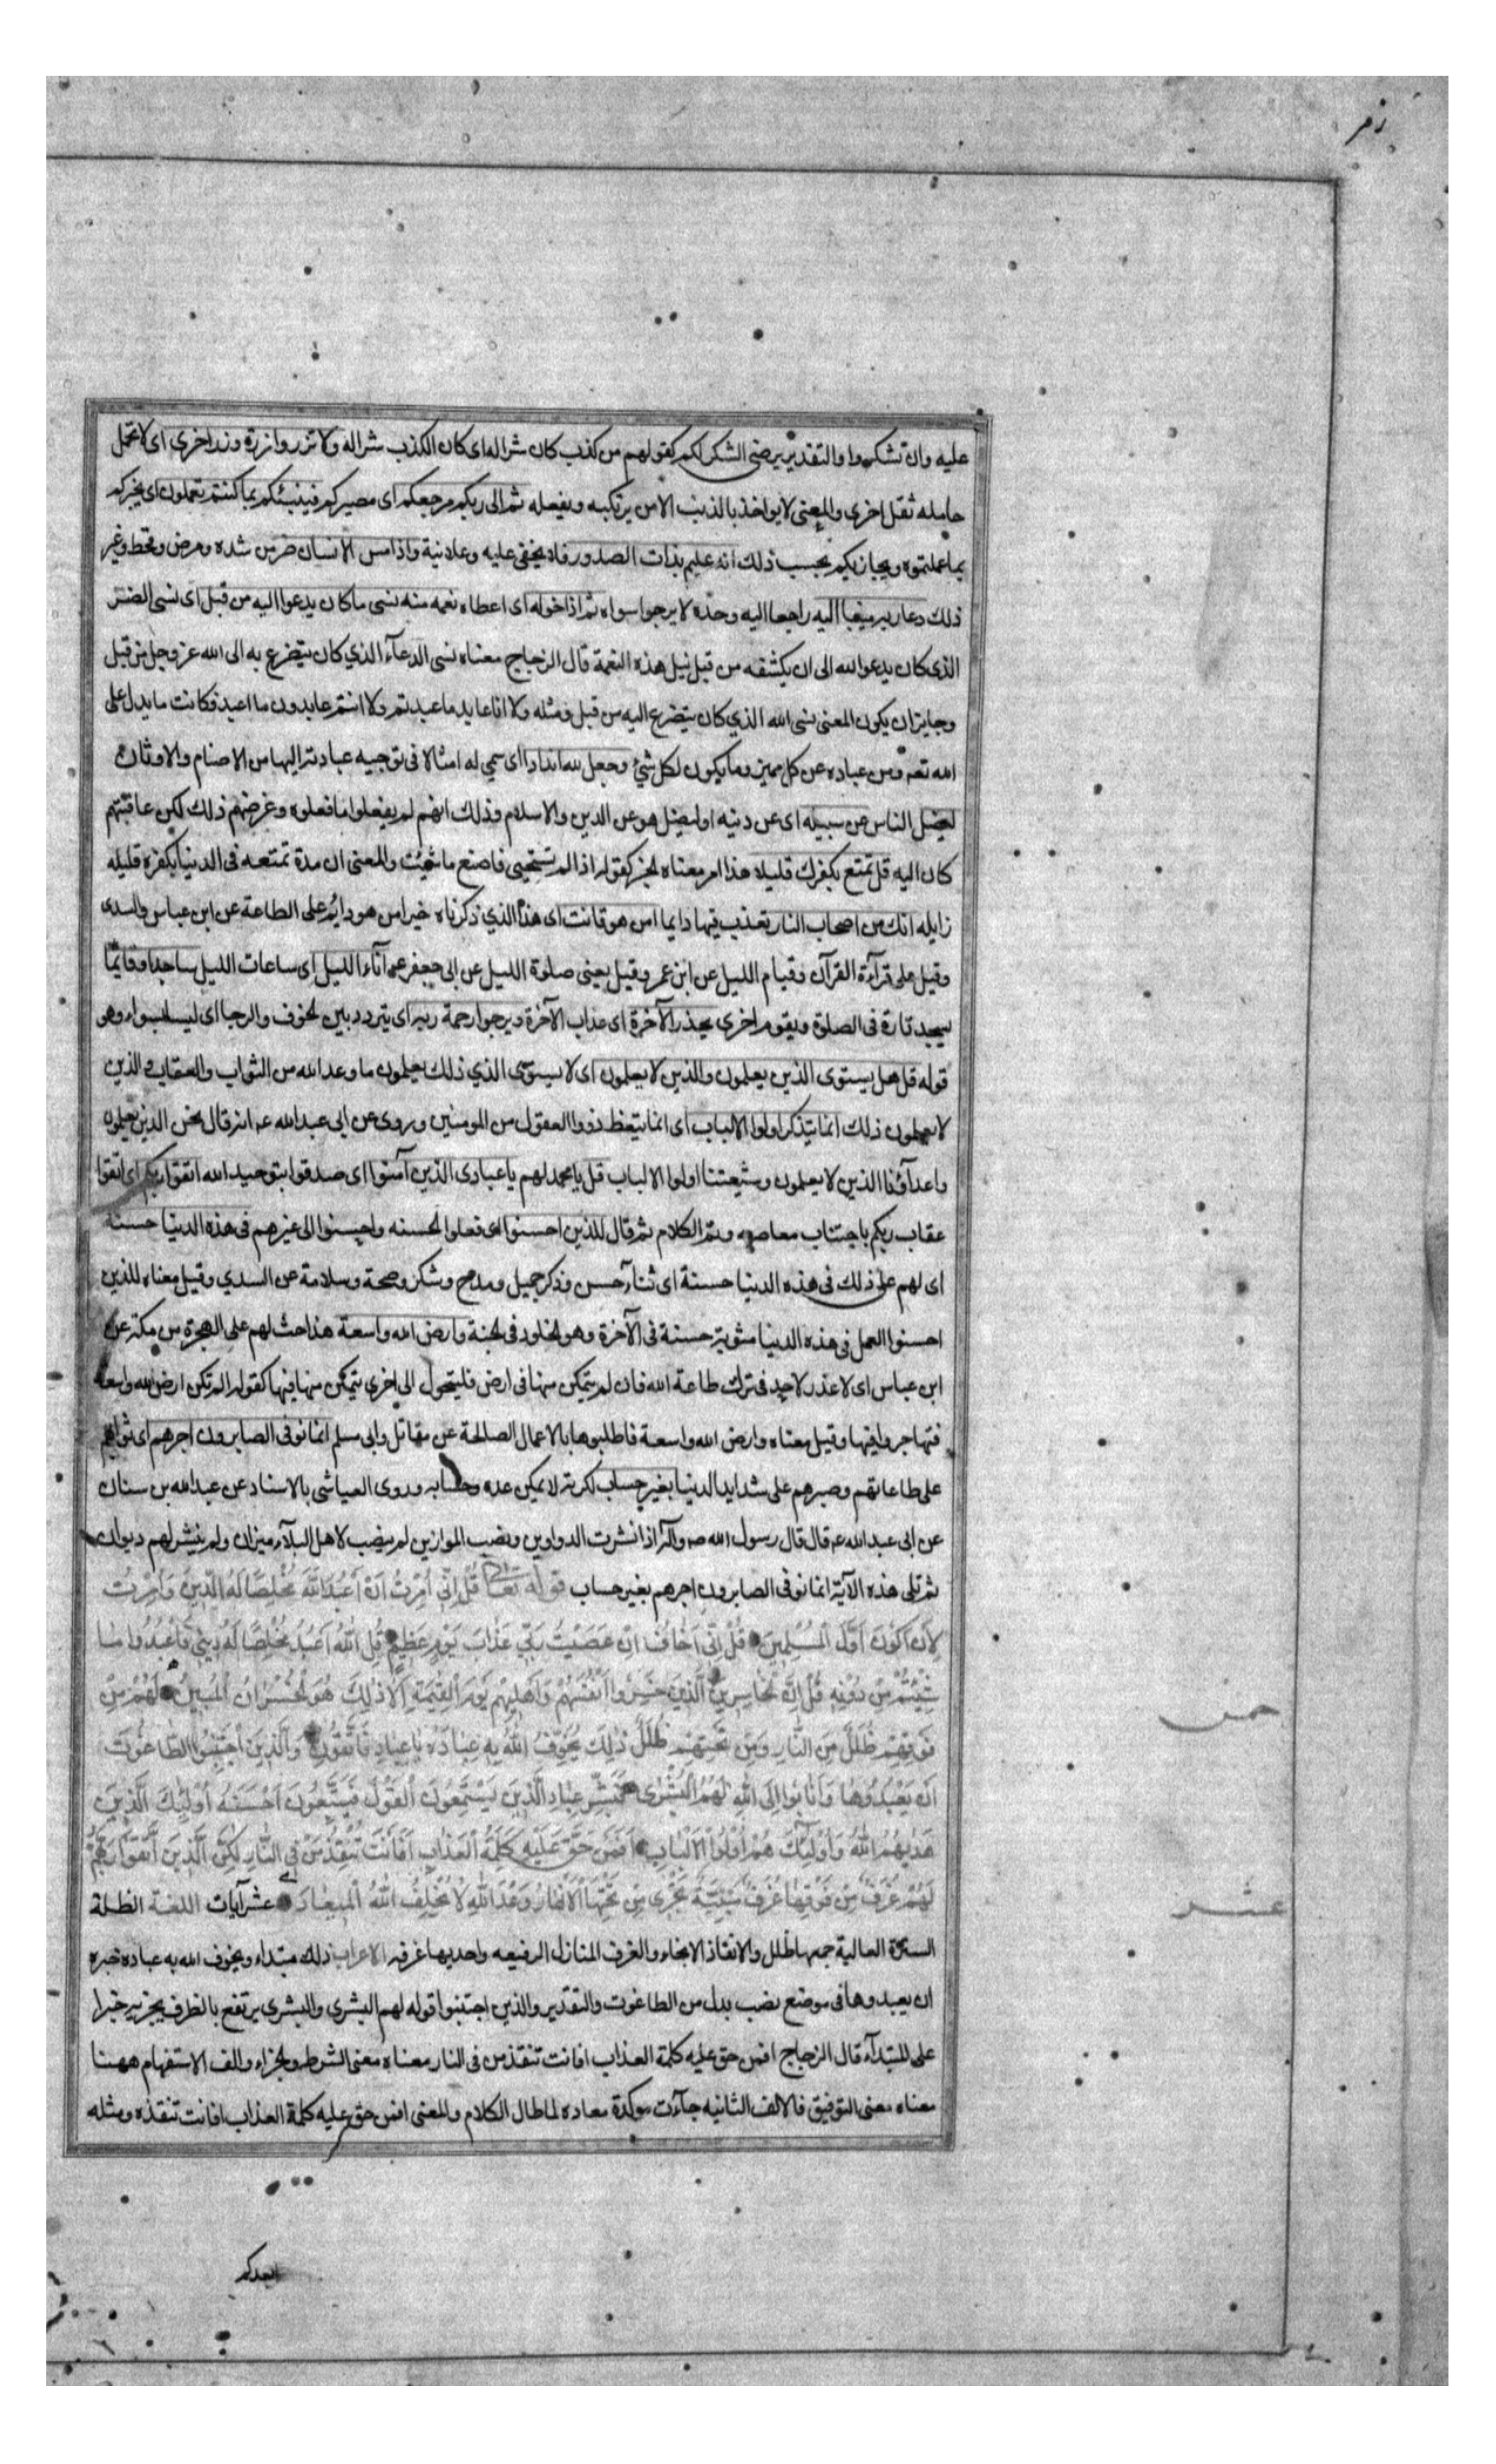 زمر
عليه وان تشكروا والتقدير يرضى الشكر لكم كقولهم من كذب كان شرا له اى كان الكذب شرا له ولا تزر وازرة وزر اخرى اى لا تحمل
حامله ثقل اخرى والمعنى لا يواخذ بالذنب الا من يرتكبه ويفعله ثم الى ربكم مرجعكم اى مصيركم فينبئكم بما كنتم تعملون اى يخبركم
بما عملتموه ويجازيكم بحسب ذلك انه عليم بذات الصدور فلا يخفى عليه وعلانية واذا مس الانسان ضر من شده ومرض وقحط وغير
ذلك دعا ربه منيبا اليه راجعا اليه وحده لا يرجوا سواه ثم اذا خوله اى اعطاه نعمه منه نسى ما كان يدعوا اليه من قبل اى نسى الضر
الذى كان يدعو الله الى ان يكشفه من قبل نيل هذه النعمة قال الزجاج معناه نسى الدعآء الذي كان يتضرع به الى الله عز وجل من قبل
وجايز ان يكون المعنى نسى الله الذي كان يتضرع اليه من قبل ومثله ولا انا عابد ما عبدتم ولا انتم عابدون ما اعبد فكانت ما يدل على
الله تعه ومن عباده عن كل مميز وما يكون لكل شئ وجعل لله اندادا اى سمي له امثالا فى توجيه عبادته اليها من الاصنام والاوثان
ليضل الناس عن سبيله اى عن دنيه او ليضل هو عن الدين والاسلام وذلك انهم لم يفعلوا ما فعلوه وغرضهم ذلك لكن عاقبتهم
كان اليه قل تمتع بكفرك قليلا هذا امر معناه لخبر كقوله اذا لم تستحيى فاصنع ما شئيت والمعنى ان مدة تمتعه فى الدنيا بكفره قليله
زايله انك من اصحاب النار تعذب فيها دايما امن هو قانت اى هذا الذي ذكرناه خير امن هو دائم على الطاعة عن ابن عباس والسدى
وقيل على قرآءة القرآن وقيام الليل عن ابن عمر وقيل يعنى صلوة الليل عن ابى جعفر عم آناء الليل اى ساعات الليل ساجدا وقائما
يسجد تارة فى الصلوة ويقوم اخرى يحذر الآخرة اى عذاب الآخرة ويرجوا رحمة ربه اى يتردد بين لخوف والرجا اى ليسا بسواء وهو
قوله قل هل يستوى الذين يعلمون والذين لا يعلمون اى لا يستوى الذي ذلك يعلمون ما وعد الله من الثواب والعقاب والذين
لا يعلمون ذلك انما يتذكر اولوا الالباب اى انما يتعظ ذووا العقول من المومنين وروى عن ابى عبدالله عه انه قال نحن الذين يعلمون
واعدآؤنا الذين لا يعلمون وشيعتنا اولوا الالباب قل يا محمد لهم يا عبادى الذين آمنوا اى صدقوا بتوحيد الله اتقوا ربكم اى اتقوا
عقاب ربكم باجتناب معاصيه وتم الكلام ثم قال للذين احسنوا اى فعلوا لحسنه واحسنوا الى غيرهم فى هذه الدنيا حسنة
اى لهم على ذلك فى هذه الدنيا حسنة اى ثنآء حسن وذكر جميل ومدح وشكر وصحة وسلامة عن السدي وقيل معناه للذين
احسنوا العمل فى هذه الدنيا مثوبة حسنة فى الآخرة وهو لخلود فى لجنة وارض الله واسعة هذا حث لهم على الهجرة من مكة عن
ابن عباس اى لا عذر لاحد فى ترك طاعة الله فان لم يتمكن منها فى ارض فليتحول الى اخرى يتمكن منها فيها كقوله الم تكن ارض الله واسعة
فتهاجروا فيها وقيل معناه وارض الله واسعة فاطلبوها بالاعمال الصالحة عن مقاتل وابى مسلم انما نوفى الصابرون اجرهم اى ثوابهم
على طاعاتهم وصبرهم على شدايد الدنيا بغير حساب لكثرته لا يمكن عده وحسابه وروى العياشى بالاسناد عن عبدالله بن سنان
عن ابى عبدالله عه قال قال رسول الله صه وآله اذا نشرت الدواوين ونصب الموازين لم ينصب لاهل البلآء ميزان ولم ينشر لهم ديوان
ثم تلى هذه الآية انما نوفى الصابرون اجرهم بغير حساب قوله تعالى قُلْ اِنّى اُمِرْتُ اَنْ اَعْبُدَ اللّٰهَ مُخْلِصًا لَهُ الدّينَ وَاُمِرْتُ
لِاَنْ اَكُونَ اَوَّلَ الْمُسْلِمينَ قُلْ اِنّى اَخافُ اِنْ عَصَيْتُ رَبّى عَذابَ يَوْمٍ عَظيمٍ قُلِ اللّٰهَ اَعْبُدُ مُخْلِصًا لَهُ دينى فَاعْبُدُوا ما
شِئْتُمْ مِنْ دُونِهِ قُلْ اِنَّ لْخاسِرينَ الَّذينَ خَسِرُوا اَنْفُسَهُمْ وَاَهْليهِمْ يَوْمَ الْقِيمَةِ اَلا ذلِكَ هُوَ لْخُسْرانُ الْمُبينُ لَهُمْ مِنْ
فَوْقِهِمْ ظُلَلٌ مِنَ النّارِ وَمِنْ تَحْتِهِمْ ظُلَلٌ ذلِكَ يُخَوِّفُ اللّٰهُ بِهِ عِبادَهُ يا عِبادِ فَاتَّقُونِ وَالَّذينَ اجْتَنَبُوا الطّاغُوتَ
اَنْ يَعْبُدُوها وَاَنابُوا اِلَى اللّٰهِ لَهُمُ الْبُشْرى فَبَشِّرْ عِبادِ الَّذينَ يَسْتَمِعُونَ الْقَوْلَ فَيَتَّبِعُونَ اَحْسَنَهُ اُولئِكَ الَّذينَ
هَديهُمُ اللّٰهُ وَاُولئِكَ هُمْ اُولُوا الْاَلْبابِ اَفَمَنْ حَقَّ عَلَيْهِ كَلِمَةُ الْعَذابِ اَفَاَنْتَ تُنْقِذُ مَنْ فِى النّارِ لكِنِ الَّذينَ اتَّقَوْا رَبَّهُمْ
لَهُمْ غُرَفٌ مِنْ فَوْقِها غُرَفٌ مَبْنِيَّةٌ تَجْرى مِنْ تَحْتِهَا الْاَنْهارُ وَعْدَ اللّٰهِ لا يُخْلِفُ اللّٰهُ الْميعادَ عشر آيات اللغة الظلة
السترة العالية جمعها ظلل والانقاذ الانجاء والغرف المنازل الرفيعه واحديها غرفه الاعراب ذلك مبتداء ويخوف الله به عباده خبره
ان يعبدوها فى موضع نصب بدل من الطاغوت والتقدير والذين اجتنبوا قوله لهم البشرى والبشرى يرتفع بالظرف يجزيه خبرا
على المبتدآء قال الزجاج افمن حق عليه كلمة العذاب افانت تنقذ من فى النار معناه معنى الشرط ولجزاء والف الاستفهام ههنا
معناه معنى التوفيق فالالف الثانيه جآءت موكدة معاده لما طال الكلام والمعنى افمن حق عليه كلمة العذاب افانت تنقذه ومثله
عشر
ايعدكم